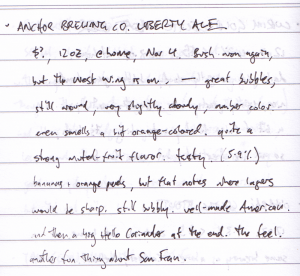 · ANCHOR BREWING CO. LIBERTY ALE
$?, 12oz, @home, Nov 4. Bush won again,
but the west wing is on. — great bubbles,
still around, very slightly cloudy, amber color.
even smells a bit orange-colored. quite a
strong muted-fruit flavor. tasty. (5.9%)
bananas + orange peels, but flat notes where lagers
would be sharp. still bubbly. well-made American.
and then a big hello Coriander at the end. the feel.
another fun thing about San Fran.